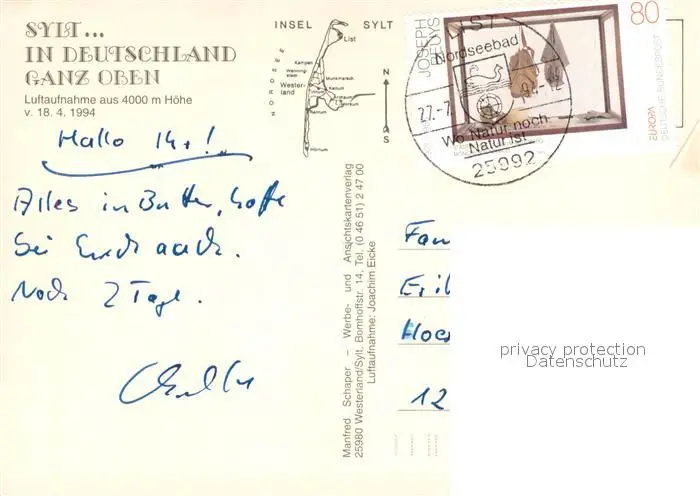 SYLT...
IN DEUTSCHLAND
GANZ OBEN
Luftaufnahme aus 4000 m Höhe
v. 18. 4. 1994
INSEL SYLT
NORDSEE
List
Kampen
Westerland
Munkmarsch
Keitum
Morsum
Hörnum
N
S
Hallo Ihr!
Alles in Butter, hoffe
bei Euch auch.
Noch 2 Tage.
Manfred Schaper – Werbe- und Ansichtskartenverlag
25980 Westerland/Sylt, Bomhoffstr. 14, Tel. (0 46 51) 2 47 00
Luftaufnahme: Joachim Eicke
JOSEPH
BEUYS
80
EUROPA
DEUTSCHE BUNDESPOST
LIST
Nordseebad
27.-7.
Wo Natur noch
Natur ist
25992
Fam
12
privacy protection
Datenschutz